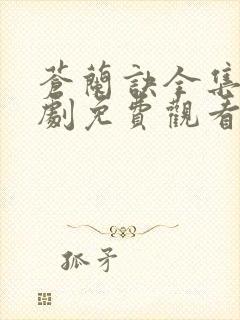 蒼蘭訣全集
劇免費觀看
孤矛